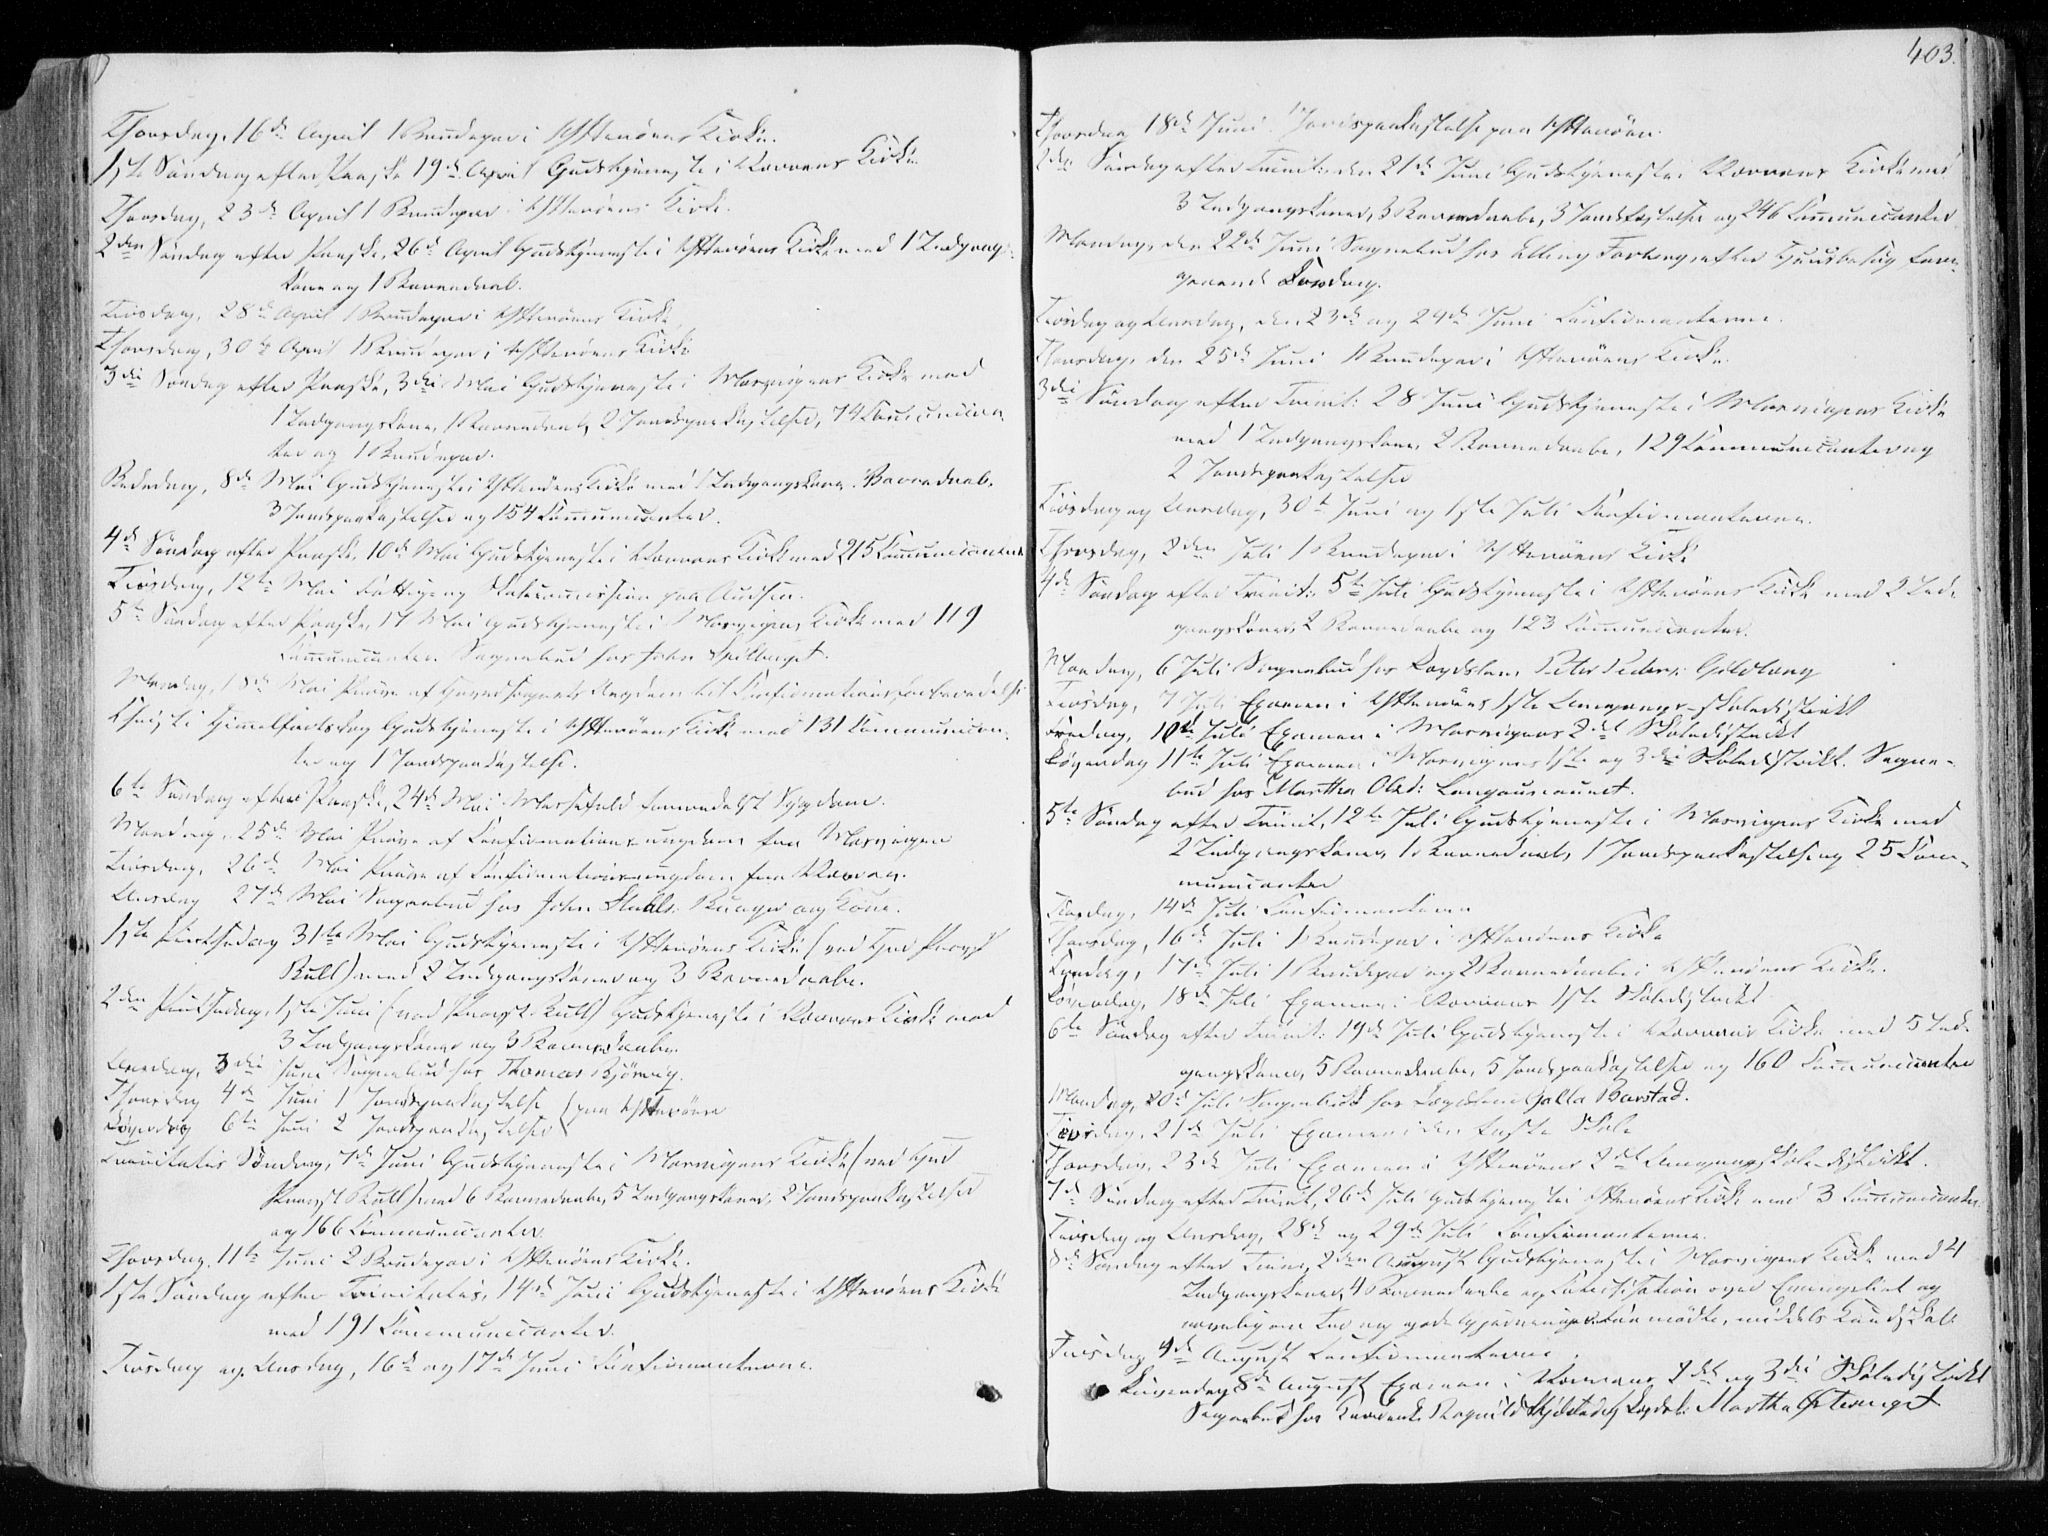 Thorsdag, 16de April 1 Brudepar i Ytterøens Kirke.
1ste Søndag efter Paaske 19de April Gudstjeneste i Kirke
Thorsdag, 23de April 1 Brudepar i Ytterøens Kirke.
2den Søndag efter Paaske, 26de April Gudstjeneste i Ytterøens Kirke med 1 Indgangs-
kone og 1 Barnedaab.
Tirsdag, 28de April 1 Brudepar i Ytterøens Kirke,
Thorsdag, 30te April 1 Brudepar i Ytterøens Kirke
3die Søndag efter Paaske, 3die Mai Gudstjeneste i Mosvigens Kirke med
1 Indgangskone, 1 Barnedaab, 2 Jordspaakastelser, 74 Communican-
ter og 1 Brudepar.
Bededag, 8de Mai Gudstjeneste i Ytterøens Kirke med 1 Indgangskone Barnedaab,
3 Jordspaakastelser og 154 Communicanter.
4de Søndag efter Paaske, 10de Mai Gudstjeneste i Kirke med 215 Communicanter
Tirsdag, 12te Mai Fattig- og Skolecommission paa
5te Søndag efter Paaske, 17 Mai Gudstjeneste i Mosvigens Kirke med 119
Communicanter. Sognebud hos John
Mandag, 18de Mai Prøve af Hovedsognets Ungdom til Confirmationsforberedelse
Christi Himmelfartsdag Gudstjeneste i Ytterøens Kirke med 131 Communican-
ter og 1 Jordspaakastelse.
6te Søndag efter Paaske, 24de Mai Messefald formedelst Sygdom.
Mandag, 25de Mai Prøve af Confirmationsungdom fra Mosvigen
Tirsdag, 26de Mai Prøve af Confirmationsungdom fra
Onsdag 27de Mai Sognebud hos John og Kone.
1ste Pintsedag 31te Mai Gudstjeneste i Ytterøens Kirke (ved Hr Provst
Bull) med 2 Indgangskoner og 3 Barnedaabe.
2den Pintsedag, 1ste Juni (ved Provst Bull) Gudstjeneste i Kirke med
3 Indgangskoner og 3 Barnedaabe.
Onsdag, 3die Juni Sognebud hos Thomas
Thorsdag 4de Juni 1 Jordspaakastelse (paa Ytterøen
Løverdag 6te Juni 2 Jordspaakastelser
Trinitatis Søndag, 7de Juni Gudstjeneste i Mosvigens Kirke (ved Hr
Provst Bull) med 6 Barnedaabe, 5 Indgangskoner, 2 Jordspaakastelser
og 166 Communicanter.
Thorsdag, 11te Juni 2 Brudepar i Ytterøens Kirke.
1ste Søndag efter Trinitatis, 14de Juni Gudstjeneste i Ytterøens Kirke
med 191 Communicanter.
Tirsdag og Onsdag, 16de og 17de Juni Confirmanterne.
403.
Thorsdag 18de Juni 1 Jordspaakastelse paa Ytterøen.
2den Søndag efter Trinit: den 21de Juni Gudstjeneste i Kirke med
3 Indgangskoner, 3 Barnedaabe, 3 Jordkastelser og 246 Communicanter
Mandag, den 22de Juni Sognebud hos Elling efter Huusbesøg fore-
gaaende Søndag.
Tirsdag og Onsdag, den 23de og 24de Juni Confirmanterne.
Thorsdag, den 25de Juni 1 Brudepar i Ytterøens Kirke
3die Søndag efter Trinit: 28 Juni Gudstjeneste i Mosvigens Kirke
med 1 Indgangskone, 2 Barnedaabe, 129 Communicanter og
2 Jordspaakastelser
Tirsdag og Onsdag, 30te Juni og 1ste Juli Confirmanterne.
Thorsdag, 2den Juli 1 Brudepar i Ytterøens Kirke
4de Søndag efter Trinit: 5te Juli Gudstjeneste i Ytterøens Kirke med 2 Ind-
gangskoner, 2 Barnedaabe og 123 Communicanter.
Mandag, 6 Juli Sognebud hos Lægdslem Peter Peders:
Tirsdag, 7 Juli Examen i Ytterøens 1ste Omgangs-skoledistrikt
Fredag, 10de Juli Examen i Mosvigens 2det Skoledistrikt
Løverdag 11te Juli Examen i Mosvigens 1ste og 3die Skoledistrikt. Sogne-
bud hos Martha Olsd:
5te Søndag efter Trinit, 12te Juli Gudstjeneste i Mosvigens Kirke med
2 Indgangskoner, 1 Barnedaab, 1 Jordspaakastelse og 25 Com-
municanter
Tirsdag, 14de Juli Confirmanterne
Thorsdag, 16de Juli 1 Brudepar i Ytterøens Kirke
Fredag, 17de Juli 1 Brudepar og 2 Barnedaabe i Ytterøens Kirke.
Løverdag, 18de Juli Examen i 1ste Skoledistrikt
6te Søndag efter Trinit: 19de Juli Gudstjeneste i Kirke med 5 Ind-
gangskoner, 5 Barnedaabe, 5 Jordspaakastelser og 160 Communicanter
Mandag, 20de Juli Sognebud hos Lægdslem Barstad.
Tirsdag, 21de Juli Examen i den faste Skole
Thorsdag, 23de Juli Examen i Ytterøens 2det Omgangsskole-distrikt.
7de Søndag efter Trinit, 26de Juli Gudstjeneste i Ytterøens Kirke med 3 Communicanter.
Tirsdag og Onsdag, 28de og 29de Juli Confirmanterne.
8de Søndag efter Trinit, 2den August Gudstjeneste i Mosvigens Kirke med 4
Indgangskoner, 4 Barnedaabe og Catechisation over Evangeliet og

Tirsdag 4de August Confirmanterne.
Løverdag 8de August Examen i 2det og 3die Skoledistrikt
Sognebud hos Lægdsl: Martha